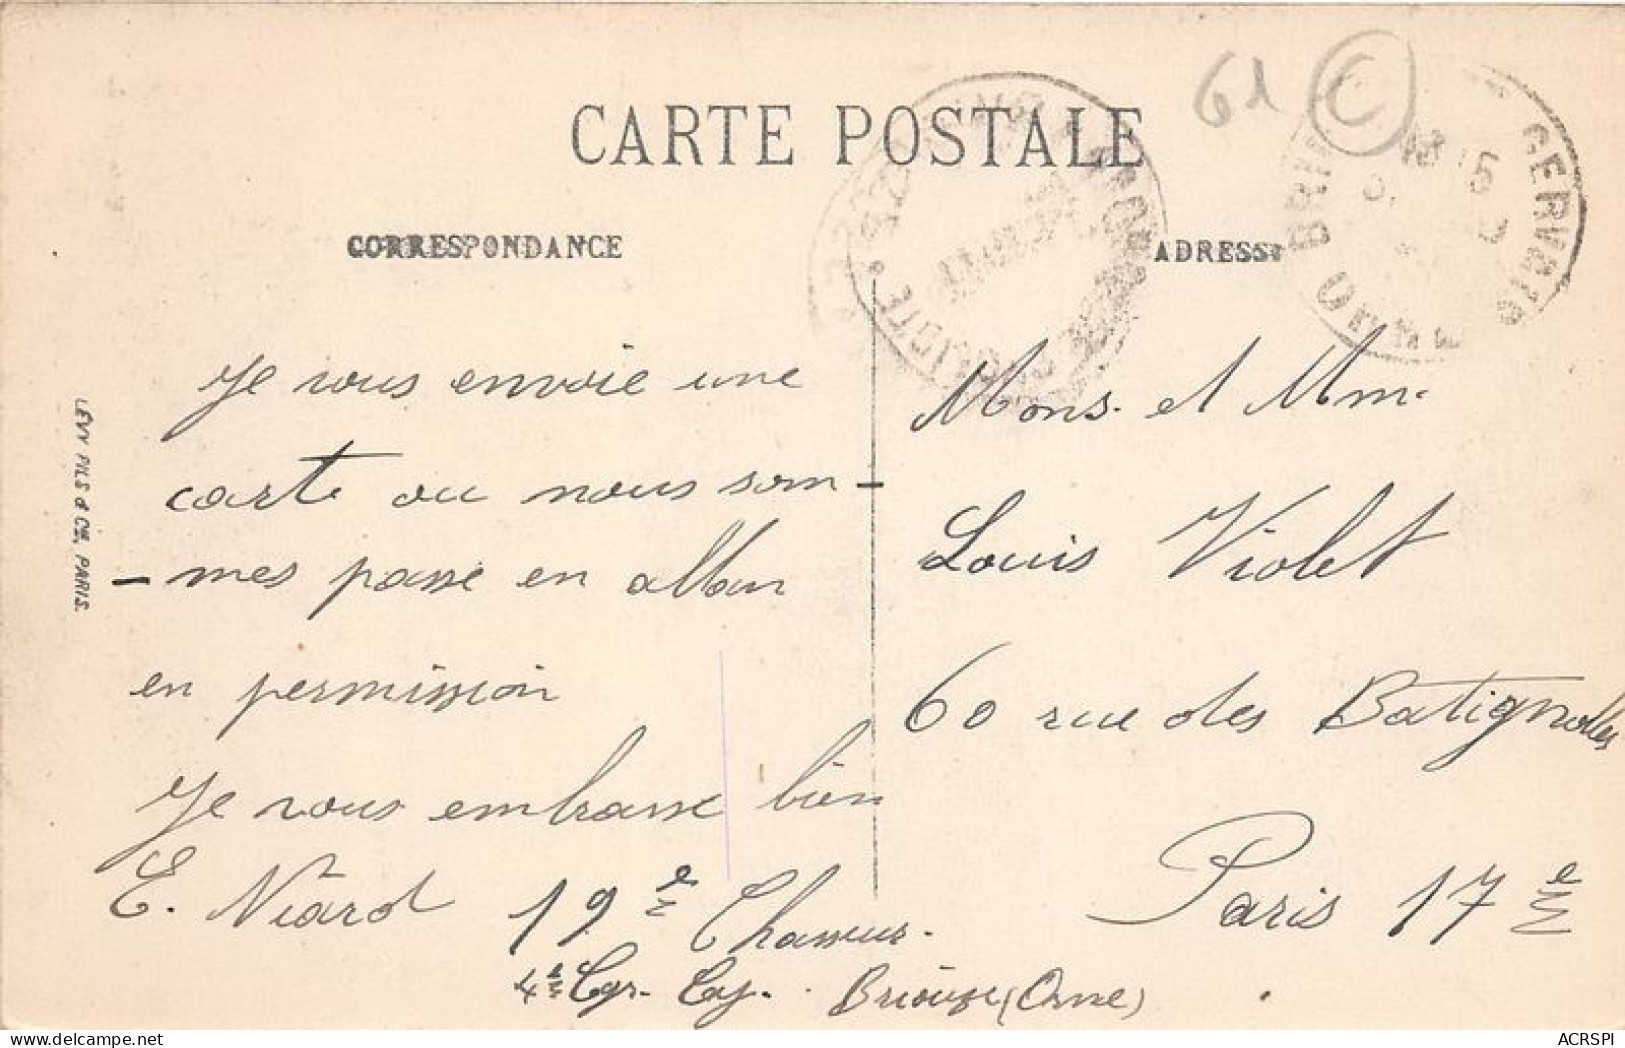 61 C
CARTE POSTALE
CORRESPONDANCE
ADRESSE
GERVAIS
LÉVY FILS & Cie, PARIS.
Je vous envoie une
carte ou nous som-
-mes passé en allan
en permission
Je vous embrasse bien
E. Niard 19e Chasseur.
4e Cyc. Briouze (Orne)
Mons. et Mm.
Louis Violet
60 rue des Batignolles
Paris 17e
ACRSPI